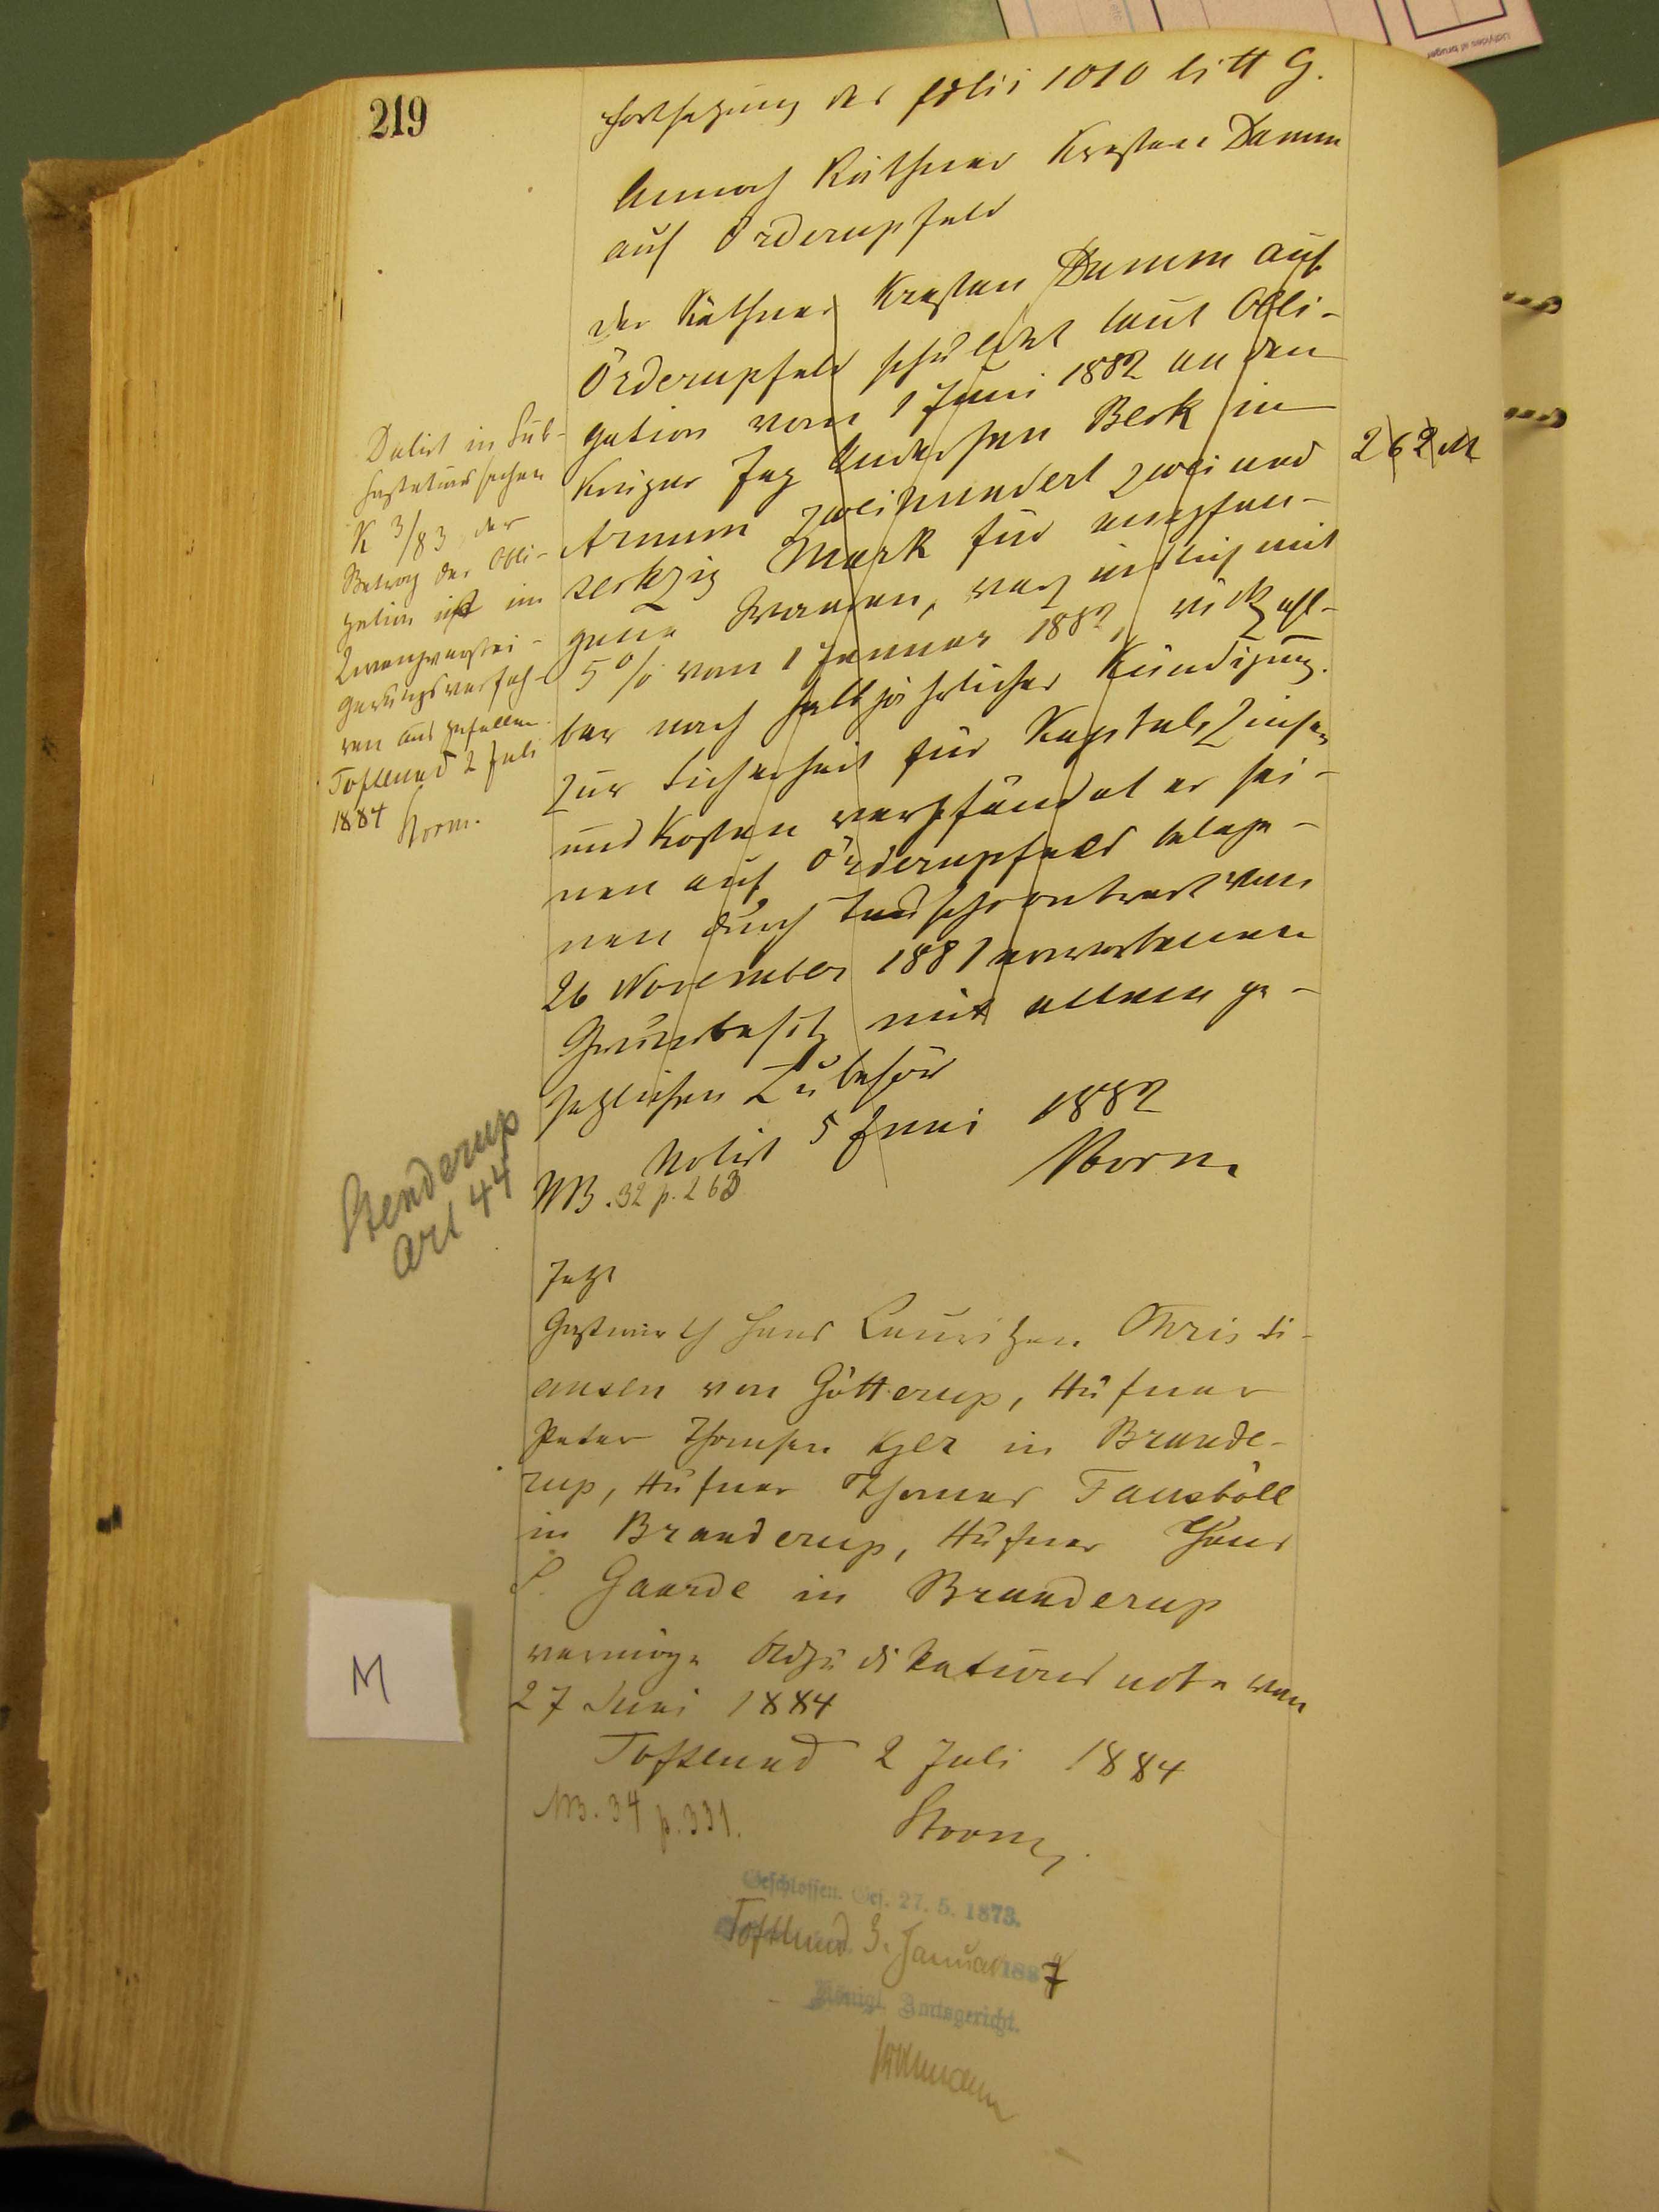 219
Fortsetzung des folii 1010 litt G.
Annoch Käthner Kresten Damm
auf Örderupfeld
Der Käthner Kresten Damm auf
Örderupfeld schuldet laut Obli-
gation vom 1 Juni 1882 an den
Krüger Jeß Andersen Beck in
Arnum zweihundert zwei und
sechzig Mark für empfan-
gene Waaren, verzinslich mit
5% vom 1 Januar 1882, rückzahl-
bar nach halbjährlicher Kündigung.
Zur Sicherheit für Kapital, Zinsen
und Kosten verpfändet er sei-
nen auf Örderupfeld belege-
nen durch vom
26 November 1881 erworbenen
Grundbesitz mit allem ge-
setzlichen Zubehör
Notirt 5 Juni 1882
NB. 32 p. 263
Storm.
262 M
Delirt in Sub-
hastationssachen
K 3/83 der
Betrag der Obli-
gation ist im
Zwangsverstei-
gerungsverfah-
ren ausgefallen.
Toftlund 2 Juli
1884 Storm.
Stenderup
Art 44
Jetzt
Gastwirth Hans Lauritzen Christi-
ansen von Götterup, Hufner
Peter Thomsen Kjer in Brande-
rup, Hufner Thomas Fausböll
in Branderup, Hufner Hans
P. Gaarde in Branderup
vermöge Adjudikations vom
27 Juni 1884
Toftlund 2 Juli 1884
NB. 34 p. 331.
Storm,
M
Geschlossen. Ges. 27. 5. 1873.
Toftlund 3. Januar 1887
Königl. Amtsgericht.
Udfyldes af bruger